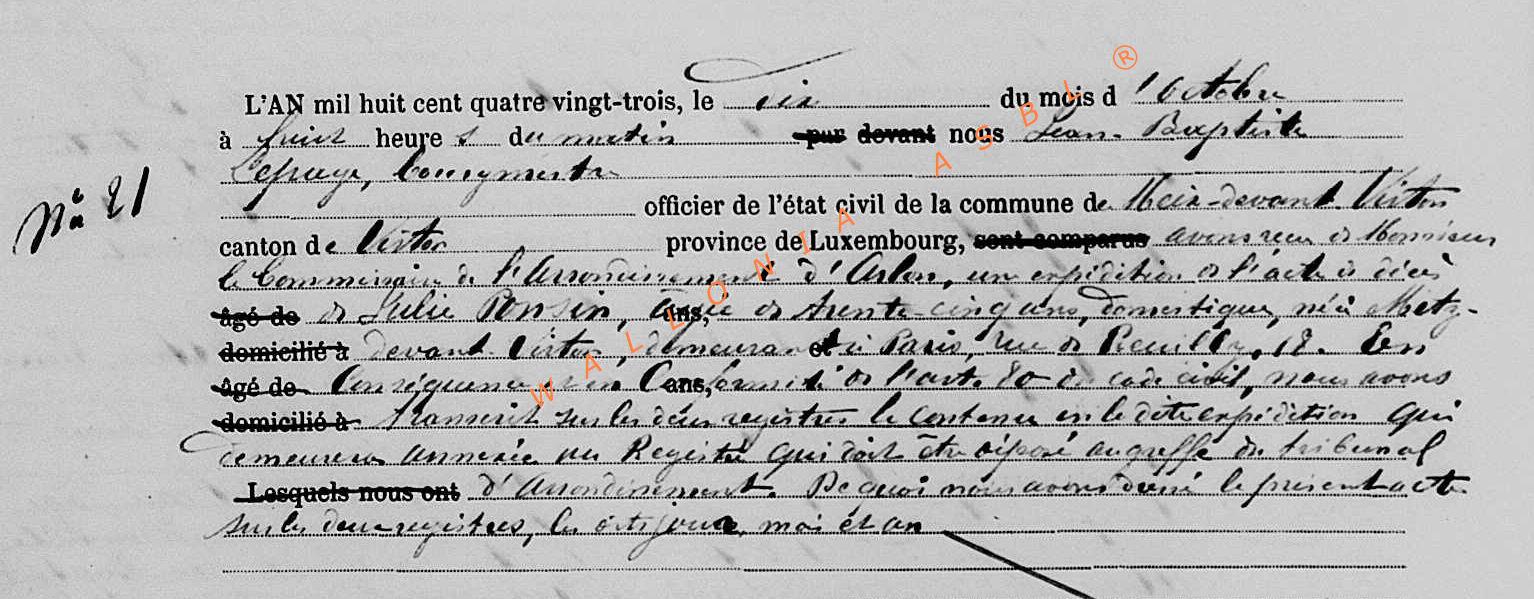 L'AN mil huit cent quatre vingt-trois, le dix du mois d'Octobre
à huit heures du matin par devant nous Jean-Baptiste
Lepage, bourgmestre
N° 21
officier de l'état civil de la commune de Meix-devant-Virton
canton de Virton province de Luxembourg, sont comparus avons reçu de Monsieur
le Commissaire de l'Arrondissement d'Arlon, une expédition de l'acte de décès
âgé de de Julie Ponsin, âgée ans, de trente-cinq ans, domestique, née à Meix-
domicilié à devant-Virton, demeurant et à Paris, rue de Reuilly, 18. En
âgé de Conséquence et en Conformité ans, de l'art. 80 du code civil, nous avons
domicilié à transcrit sur les deux registres le contenu en la dite expédition qui
demeurera annexée au Registre qui doit être déposé au greffe du tribunal
Lesquels nous ont d'arrondissement. De quoi nous avons dressé le présent acte
sur les deux registres, les dits jour, mois et an
WALLONIA ASBL ®